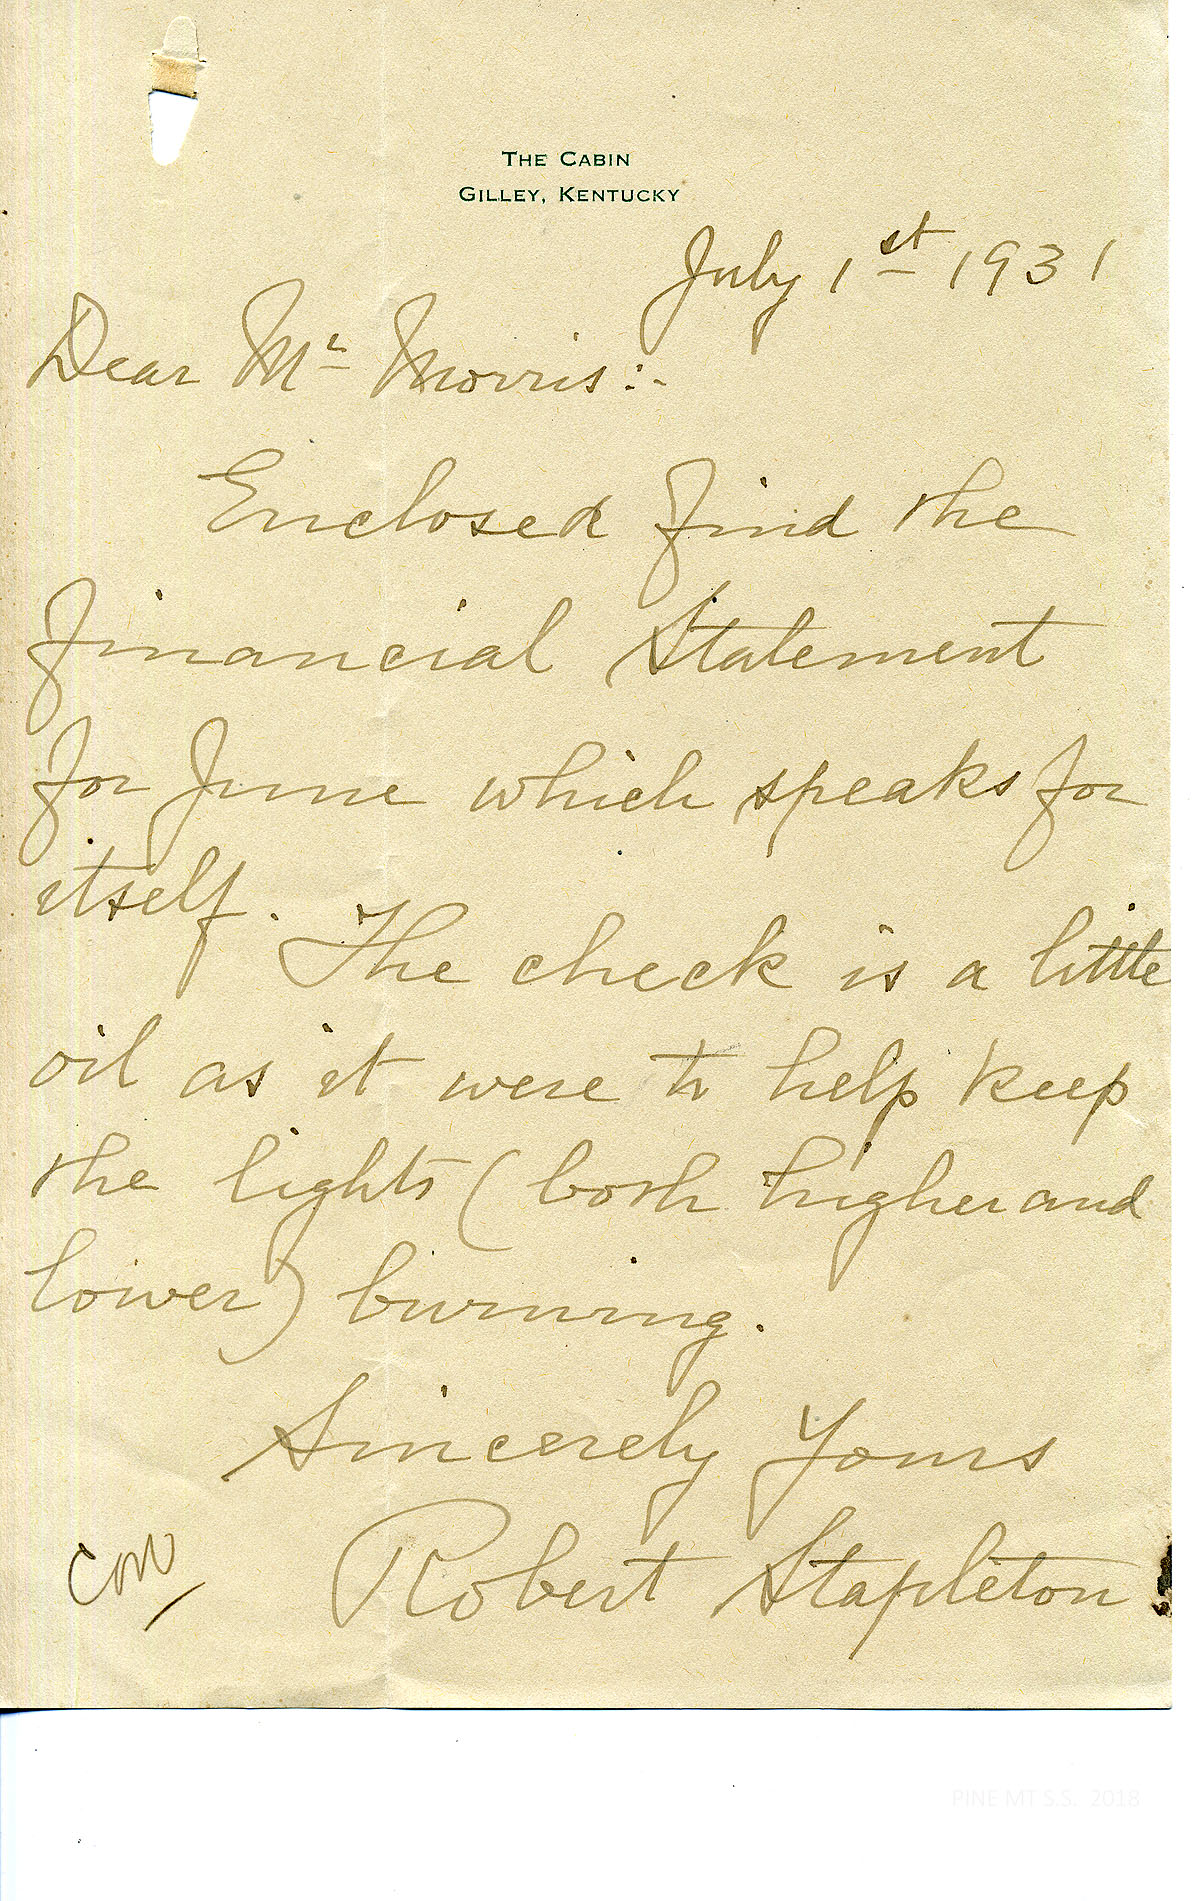 THE CABIN
GILLEY, KENTUCKY
July 1st 1931
Dear Mr Morris:-
Enclosed find the
financial Statement
for June which speaks for
itself.
The check is a little
oil as it were to help keep
the lights (both higher and
lower) burning.
Sincerely Yours
Robert Stapleton
PINE MT S.S. 2018